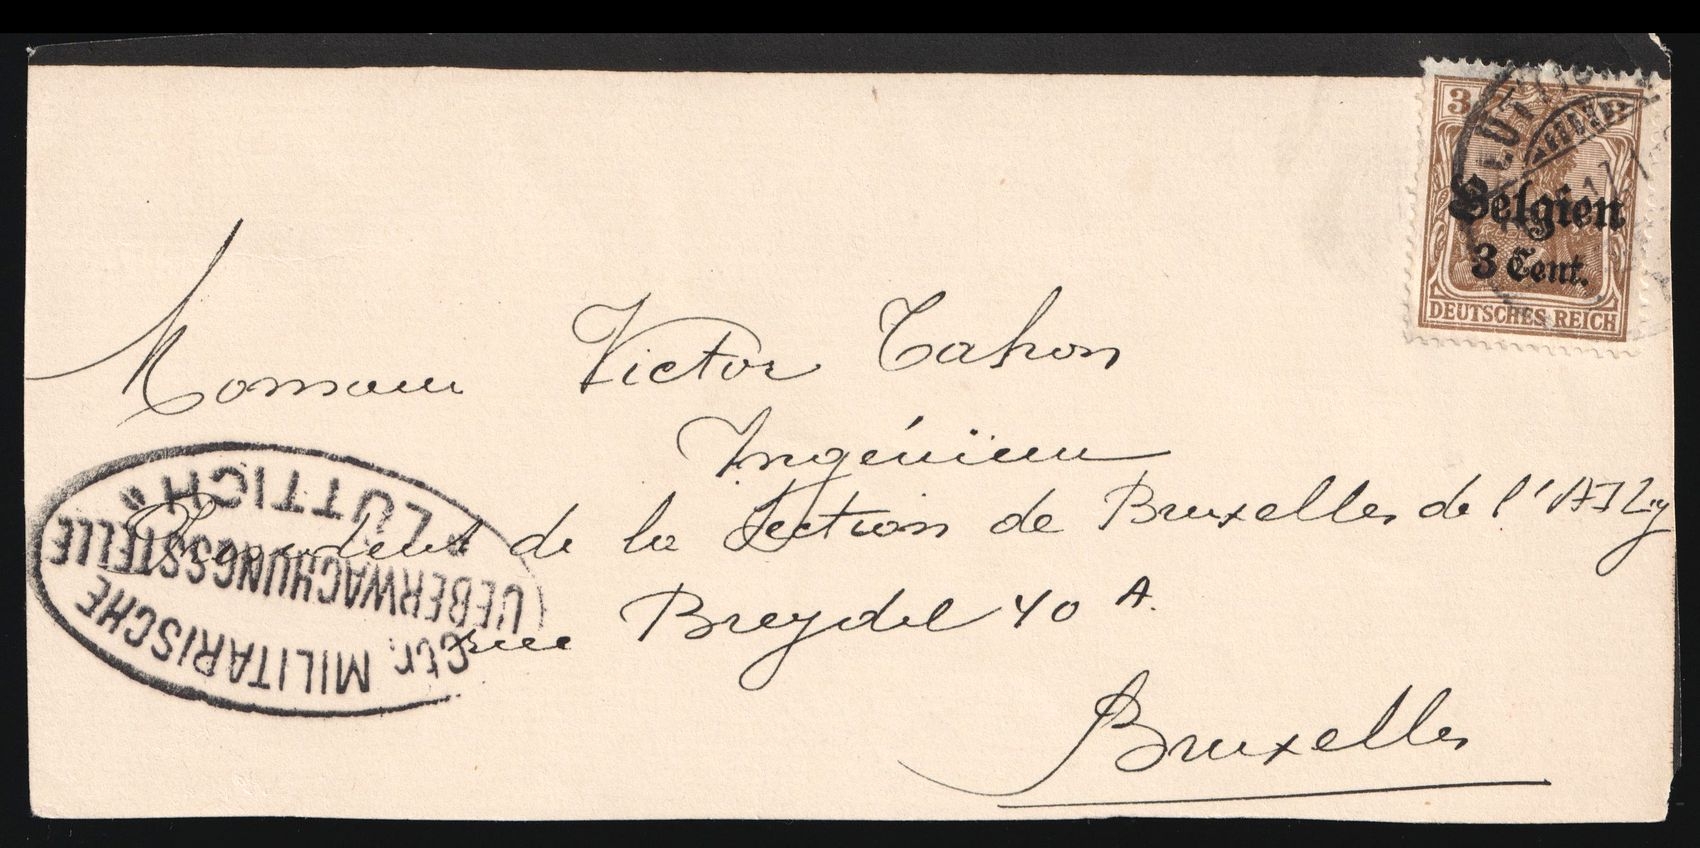 3
LÜTTICH
Belgien
3 Cent.
DEUTSCHES REICH
Monsieur Victor Tahon
Ingénieur
Président de la Section de Bruxelles de l'AILg
rue Breydel 40 A.
Bruxelles
Gtr. MILITARISCHE
UEBERWACHUNGSSTELLE
"LÜTTICH"